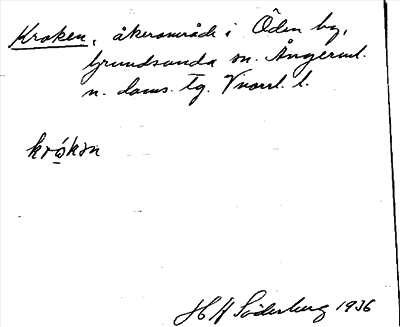 Kroken, åkerområde i Öden by,
Grundsunda sn. Ångerml.
n. doms. tg. Vnorrl. l.
krókən
H H Söderberg 1936